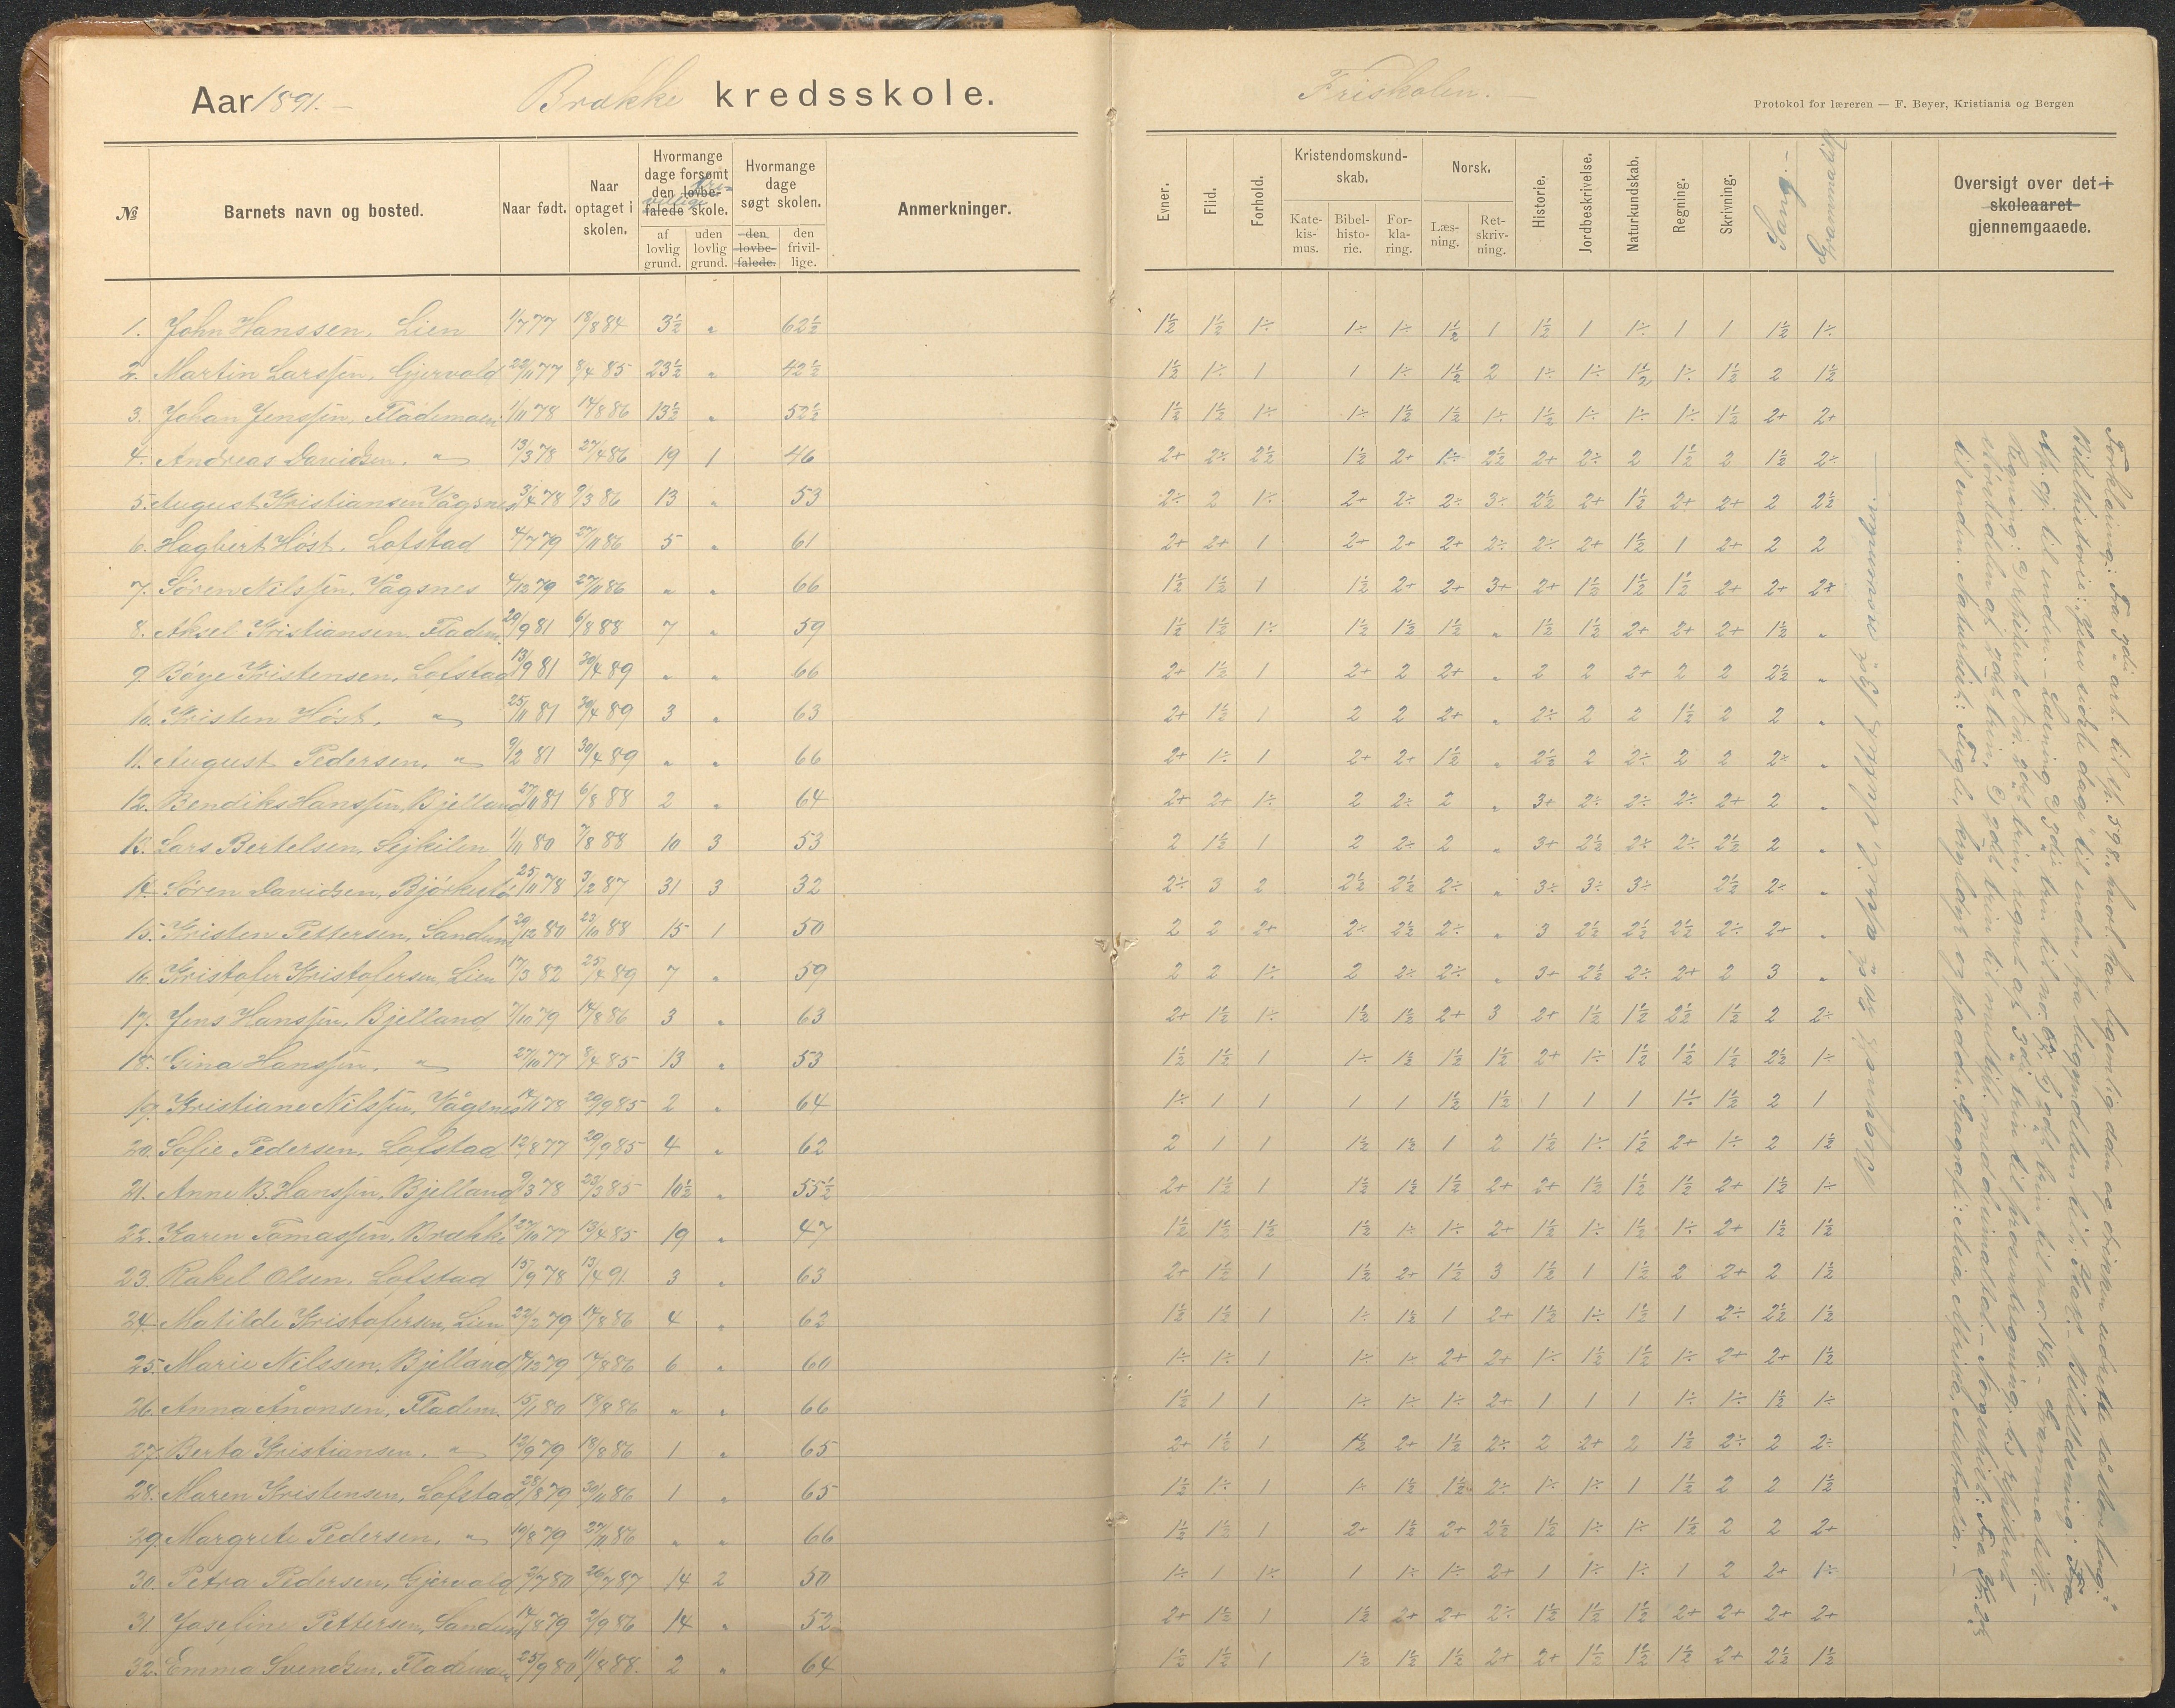 Aar 1891. — Brække kredsskole.
Friskolen. —
Protokol for læreren — F. Beyer, Kristiania og Bergen
№ Barnets navn og bosted. Naar født. Naar optaget i skolen. Hvormange dage forsømt den lovbefalede frivillige skole. af lovlig grund. uden lovlig grund. Hvormange dage søgt skolen. den lovbefalede. den frivillige. Anmerkninger.
Evner. Flid. Forhold. Kristendomskundskab. Katekismus. Bibelhistorie. Forklaring. Norsk. Læsning. Retskrivning. Historie. Jordbeskrivelse. Naturkundskab. Regning. Skrivning. Sang. — Gramatik Oversigt over det i skoleaaret gjennemgaaede.
1. John Hanssen, Lien 1/7 77 18/8 84 3½ " 62½ 1½ 1½ 1÷ 1÷ 1÷ 1½ 1 1½ 1 1÷ 1 1 1½ 1÷
2. Martin Larssen, Gjervold 22/11 77 8/4 85 23½ " 42½ 1½ 1÷ 1 1 1÷ 1½ 2 1÷ 1÷ 1½ 1÷ 1½ 2 1½
3. Johan Jenssen, Flademoen 1/11 78 14/8 86 13½ " 52½ 1½ 1½ 1÷ 1÷ 1½ 1½ 1÷ 1½ 1÷ 1÷ 1÷ 1½ 2+ 2+
4. Andreas Davidsen, " 13/3 78 27/4 86 19 1 46 2+ 2÷ 2½ 1½ 2+ 1÷ 2½ 2+ 2÷ 2 1½ 2 1½ 2÷
5. August Kristiansen Vågsnes 3/4 78 9/3 86 13 " 53 2÷ 2 1÷ 2+ 2÷ 2÷ 3÷ 2½ 2+ 1½ 2+ 2+ 2 2½
6. Hagbert Höst, Lofstad 4/7 79 27/11 86 5 " 61 2+ 2+ 1 2+ 2+ 2+ 2÷ 2÷ 2+ 1½ 1 2+ 2 2
7. Sören Nilssen, Vågsnes 4/12 79 27/11 86 " " 66 1½ 1½ 1 1½ 2+ 2+ 3+ 2+ 1½ 1½ 1½ 2+ 2+ 2+
8. Aksel Kristiansen, Fladem. 20/9 81 6/8 88 7 " 59 1½ 1½ 1÷ 1½ 1½ 1½ " 1½ 1½ 2+ 2+ 2+ 1½ "
9. Böye Kristensen, Lofstad 13/9 81 30/4 89 " " 66 2+ 1½ 1 2+ 2 2+ " 2 2 2+ 2 2 2½ "
10. Kristen Höst, " 25/11 81 30/4 89 3 " 63 2+ 1½ 1 2 2 2+ " 2÷ 2 2 1½ 2 2 "
11. August Pedersen, " 9/2 81 30/4 89 " " 66 2+ 1÷ 1 2+ 2+ 1½ " 2½ 2 2÷ 2 2 2÷ "
12. Bendiks Hanssen, Bjelland 27/11 81 6/8 88 2 " 64 2+ 2+ 1÷ 2 2÷ 2 " 3+ 2÷ 2÷ 2÷ 2+ 2 "
13. Lars Bertelsen, Sejkilen 1/11 80 7/8 88 10 3 53 2 1½ 1 2 2÷ 2 " 3+ 2½ 2÷ 2÷ 2½ 2 "
14. Sören Davidsen, 25/11 78 3/2 87 31 3 32 2÷ 3 2 2½ 2½ 2÷ " 3÷ 3÷ 3÷ 2½ 2÷ "
15. Kristen Pettersen, Sandum 29/12 80 23/10 88 15 1 50 2 2 2+ 2÷ 2½ 2÷ " 3 2½ 2½ 2½ 2÷ 2+ "
16. Kristofer Kristofersen, Lien 17/3 82 25/4 89 7 " 59 2 2 1÷ 2 2÷ 2÷ " 3+ 2½ 2÷ 2+ 2 3 "
17. Jens Hanssen, Bjelland 7/10 79 14/8 86 3 " 63 2+ 1½ 1÷ 1½ 1½ 2+ 3 2+ 1½ 1½ 2½ 1½ 2 2÷
18. Gina Hanssen, " 27/10 77 8/4 85 13 " 53 1½ 1½ 1 1÷ 1½ 1½ 1½ 2+ 1÷ 1½ 1½ 1½ 2½ 1÷
19. Kristiane Nilssen, Vågsnes 14/1 78 29/9 85 2 " 64 1÷ 1 1 1 1 1½ 1½ 1 1 1 1÷ 1½ 2 1
20. Sofie Pedersen, Lofstad 12/8 77 29/9 85 4 " 62 2 1 1 1½ 1½ 1 2 1½ 1÷ 1½ 2+ 1÷ 2 1½
21. Anne B. Hanssen, Bjelland 9/3 78 23/3 85 10½ " 55½ 2+ 1½ 1 1½ 1½ 1½ 2+ 2+ 1½ 1½ 1½ 2+ 1½ 1÷
22. Karen Tomassen, Brække 27/10 77 13/4 85 19 " 47 1½ 1½ 1½ 1½ 1÷ 1÷ 2+ 1½ 1÷ 1½ 1÷ 2+ 1½ 1½
23. Rakel Olsen, Lofstad 15/9 78 13/4 91. 3 " 63 2+ 1½ 1 1½ 2+ 1½ 3 1½ 1 1½ 2 2+ 2 1½
24. Matilde Kristofersen, Lien 22/2 79 14/8 86 4 " 62 1½ 1½ 1 1÷ 1½ 1 2+ 1½ 1÷ 1½ 1 2÷ 2½ 1½
25. Marie Nilssen, Bjelland 14/12 79 14/8 86 6 " 60 1÷ 1÷ 1 1÷ 1÷ 2+ 2+ 1÷ 1½ 1½ 1÷ 2+ 2+ 1½
26. Anna Ånonsen, Fladem. 15/1 80 18/8 86 " " 66 1½ 1 1 1÷ 1÷ 1÷ 2+ 1 1 1 1÷ 1÷ 1½ 1÷
27. Berta Kristiansen, " 12/9 79 18/8 86 1 " 65 2+ 1½ 1 1½ 2+ 1½ 2÷ 2 2+ 2 1½ 2÷ 2 2÷
28. Maren Kristensen, Lofstad 28/8 79 30/11 86 1 " 65 1½ 1÷ 1 1÷ 1½ 1½ 2÷ 1÷ 1÷ 1 1½ 2 2 1½
29. Margrete Pedersen, " 10/8 79 27/11 86 " " 66 1½ 1½ 1 2+ 1½ 2+ 2½ 1½ 1÷ 1÷ 1½ 2 2 2+
30. Petra Pedersen, Gjervold 2/7 80 26/7 87 14 2 50 1÷ 1 1÷ 1 1÷ 1÷ 2+ 1 1÷ 1÷ 1 2 2+ 1÷
31. Josefine Pettersen, Sandum 14/8 79 2/9 86 14 " 52 2+ 1½ 1 1½ 2+ 2+ 2÷ 1½ 1½ 1½ 2+ 2+ 2+ 2+
32. Emma Svendsen, Flademoen 25/9 80 11/8 88. 2 " 64 1½ 1½ 1 1½ 1½ 1½ 2+ 2+ 1½ 1½ 1½ 2+ 2½ 1½
Forklaring: Fra 3die art. til sp. 598: hvad kan ligne
Bibelhistorie: Jesu sidste dage til enden,
til enden. — Læsning
Regning:
til enden. Naturhist.: Fugle, krybdyr og padder. Geografi: Asia, Afrika, Australia. —
20de april, sluttet 13de november.